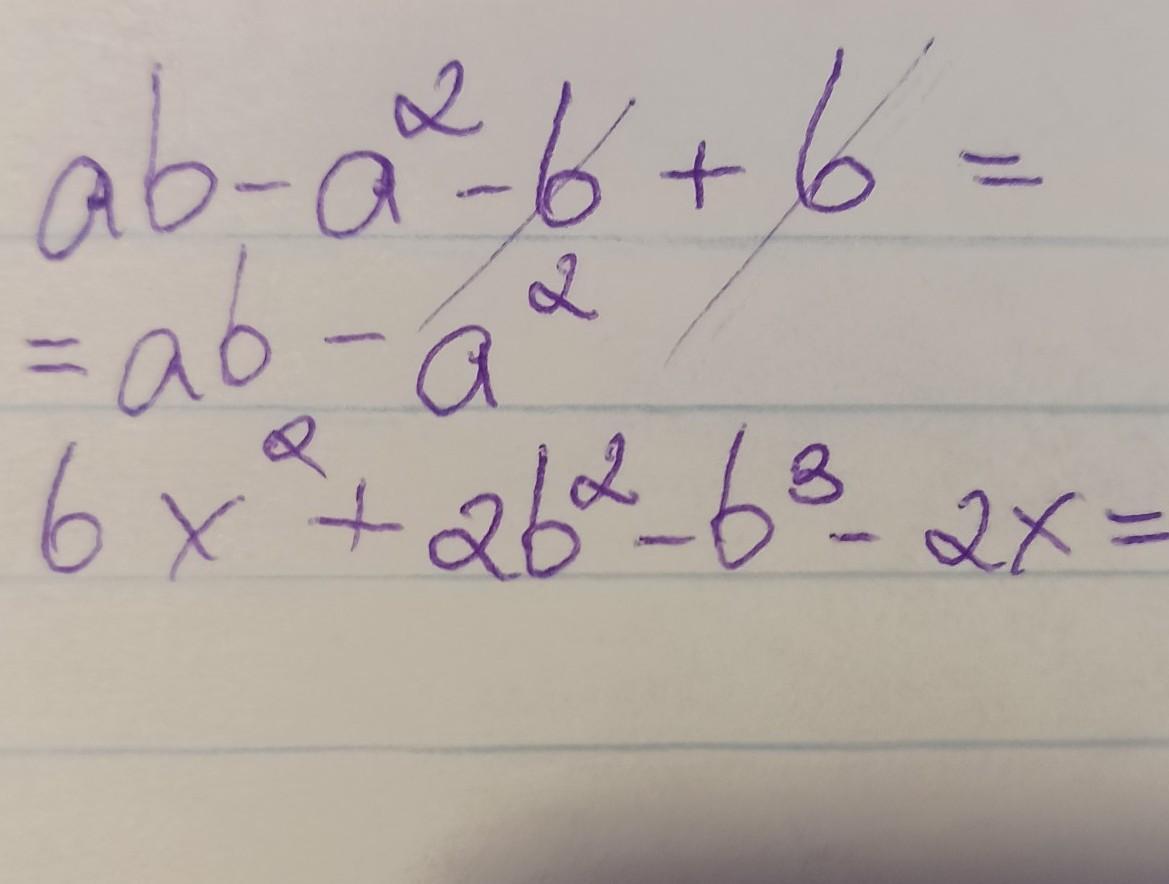 ab - a² - b + b =
= ab - a²
6x² + 2b² - b³ - 2x =